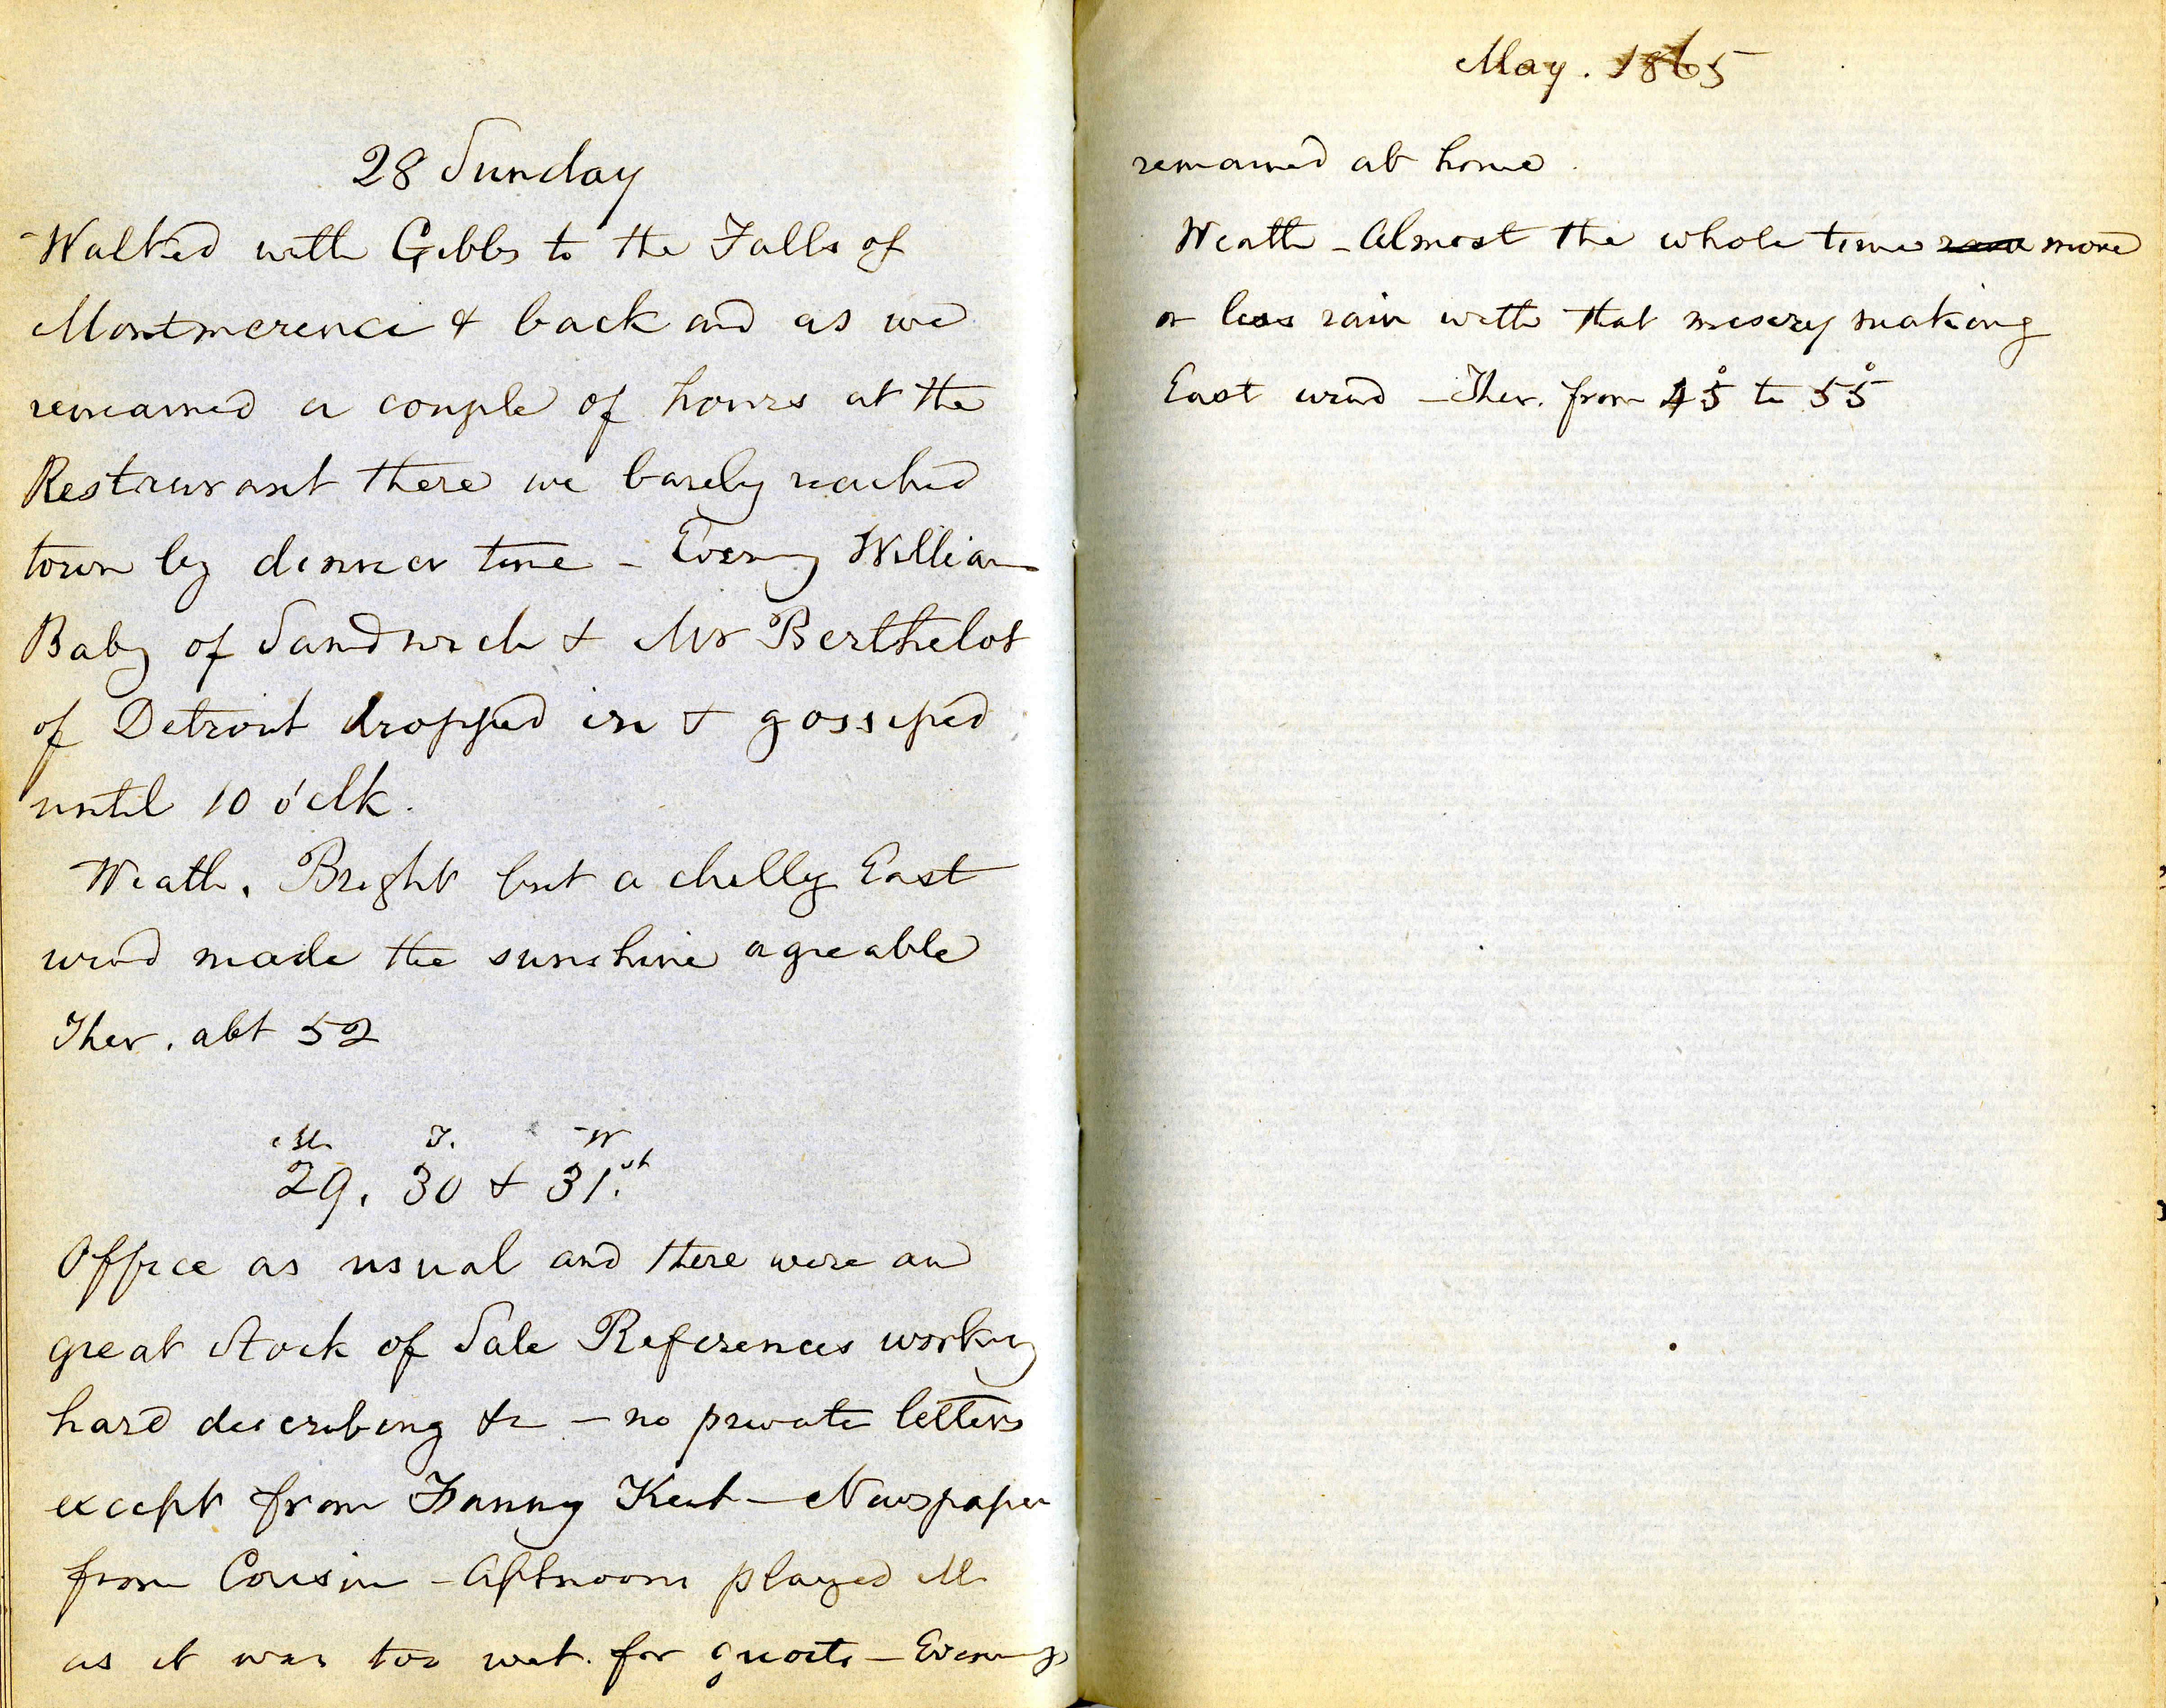 28 Sunday
Walked with Gibbs to the Falls of
Montmerenci & back and as we
remained a couple of hours at the
Restaurant there we barely reached
town by dinner time - Eveng William
Baby of Sandwich & Mr Berthelot
of Detroit dropped in & gossiped
until 10 o'clk.
Weath. Bright but a chilly East
wind made the sunshine agreable
Ther. abt 52
M. T. W
29. 30 & 31.st
Office as usual and there were an
great Stock of Sale References working
hard describing &c - no private letters
except from Fanny Kent - Newspaper
from Cousin - Aftnoon played M
as it was too wet. for quoits - Evenings
May. 1865
remained at home.
Weath - Almost the whole time more
or less rain with that misery making
East wind - Ther. from 45° to 55°